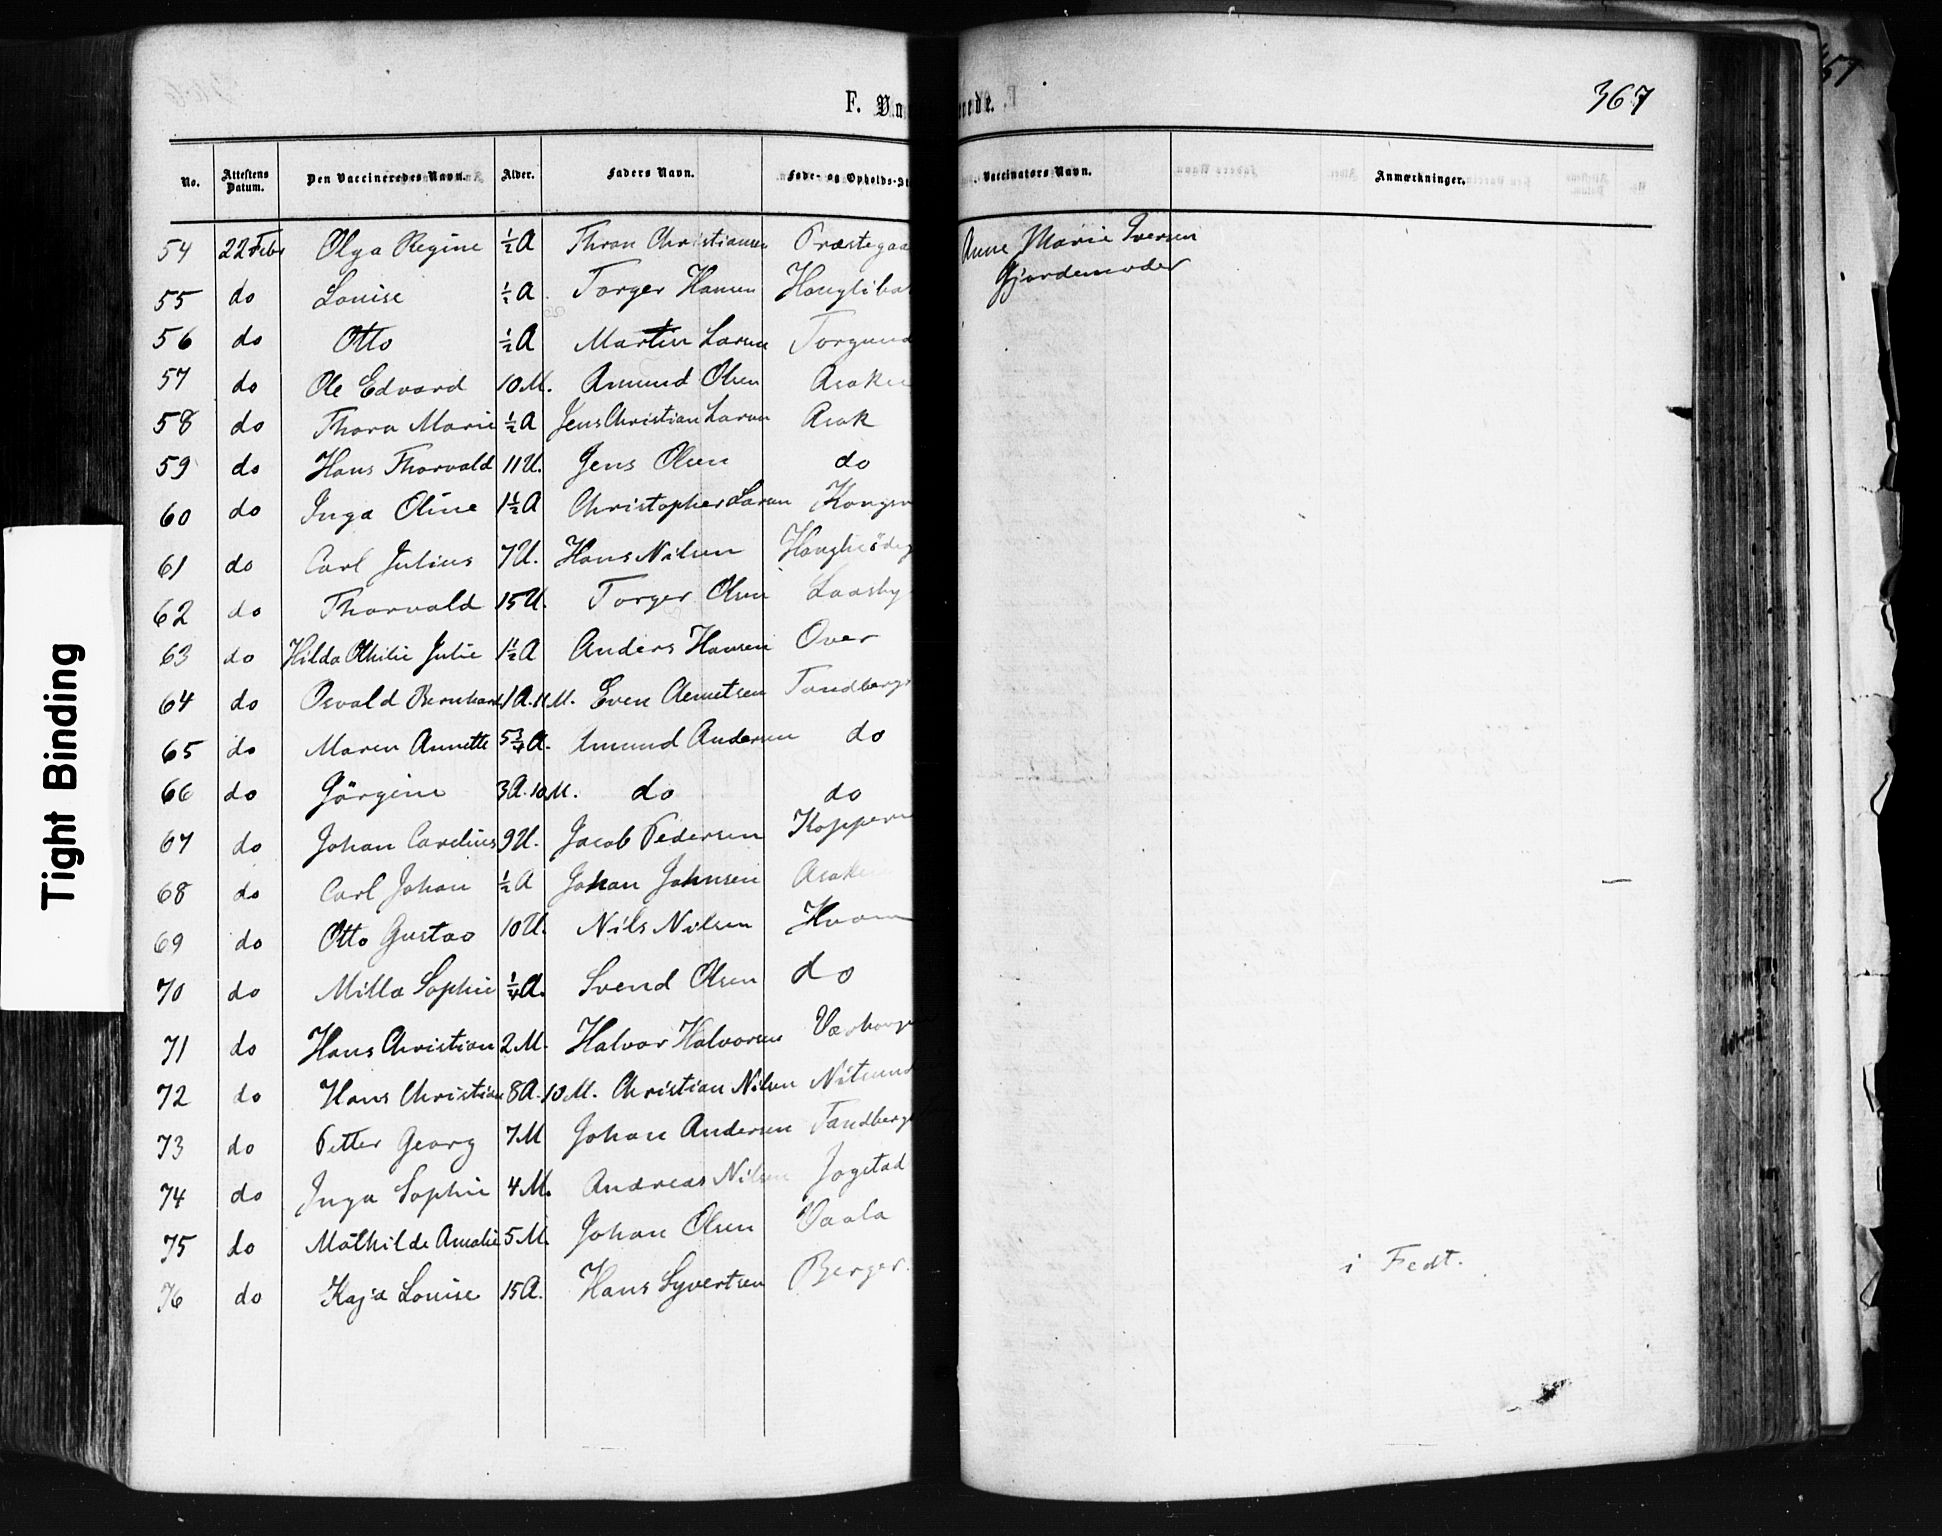 367
F. Va erede.
No. Attestens Datum. Den Vaccineredes Navn. Alder. Faders Navn. Føde- og Opholds-St Vaccinators Navn. Anmærkninger.
54 22 Febr Olga Regine ½ A Thron Christiansen Præstegaa Anne Marie Iversen
Gjordemoder
55 do Louise ½ A. Torger Hansen Houglibak
56 do Otto ½ A Martin Larsen Torgund
57 do Ole Edvard 10 M. Amund Olsen Asakei
58 do Thora Marie ½ A Jens Christian Larsen Asak
59 do Hans Thorvald 11 U. Jens Olsen do
60 do Inga Oline 1½ A Christopher Larsen Konger
61 do Carl Julius 7 U. Hans Nilsen
62 do Thorvald 15 U. Torger Olsen Laasby
63 do Hilda Othilie Julie 1½ A Anders Hansen Over
64 do Osvald Bernhard 1 A. 11 M. Even Clemetsen Tandbergs
65 do Maren Annette 5¾ A. Amund Andersen do
66 do Jörgine 3 A. 10 M. do do
67 do Johan Carelius 9 U. Jacob Pedersen Koppern
68 do Carl Johan ½ A Johan Johnsen Asakei
69 do Otto Gustav 10 U. Nils Nilsen Hvam
70 do Milla Sophie ¼ A. Svend Olsen do
71 do Hans Christian 2 M. Halvor Halvorsen
72 do Hans Christian 8 A. 10 M. Christian Nilsen Nitsund
73 do Petter Georg 7 M Johan Andersen Tandbergs
74 do Inga Sophie 4 M. Andreas Nilsen Jogstad
75 do Mathilde Amalie 5 M. Johan Olsen Vaala
76 do Kaja Louise 15 A. Hans Syvertsen Berger. i Fedt.
Tight Binding